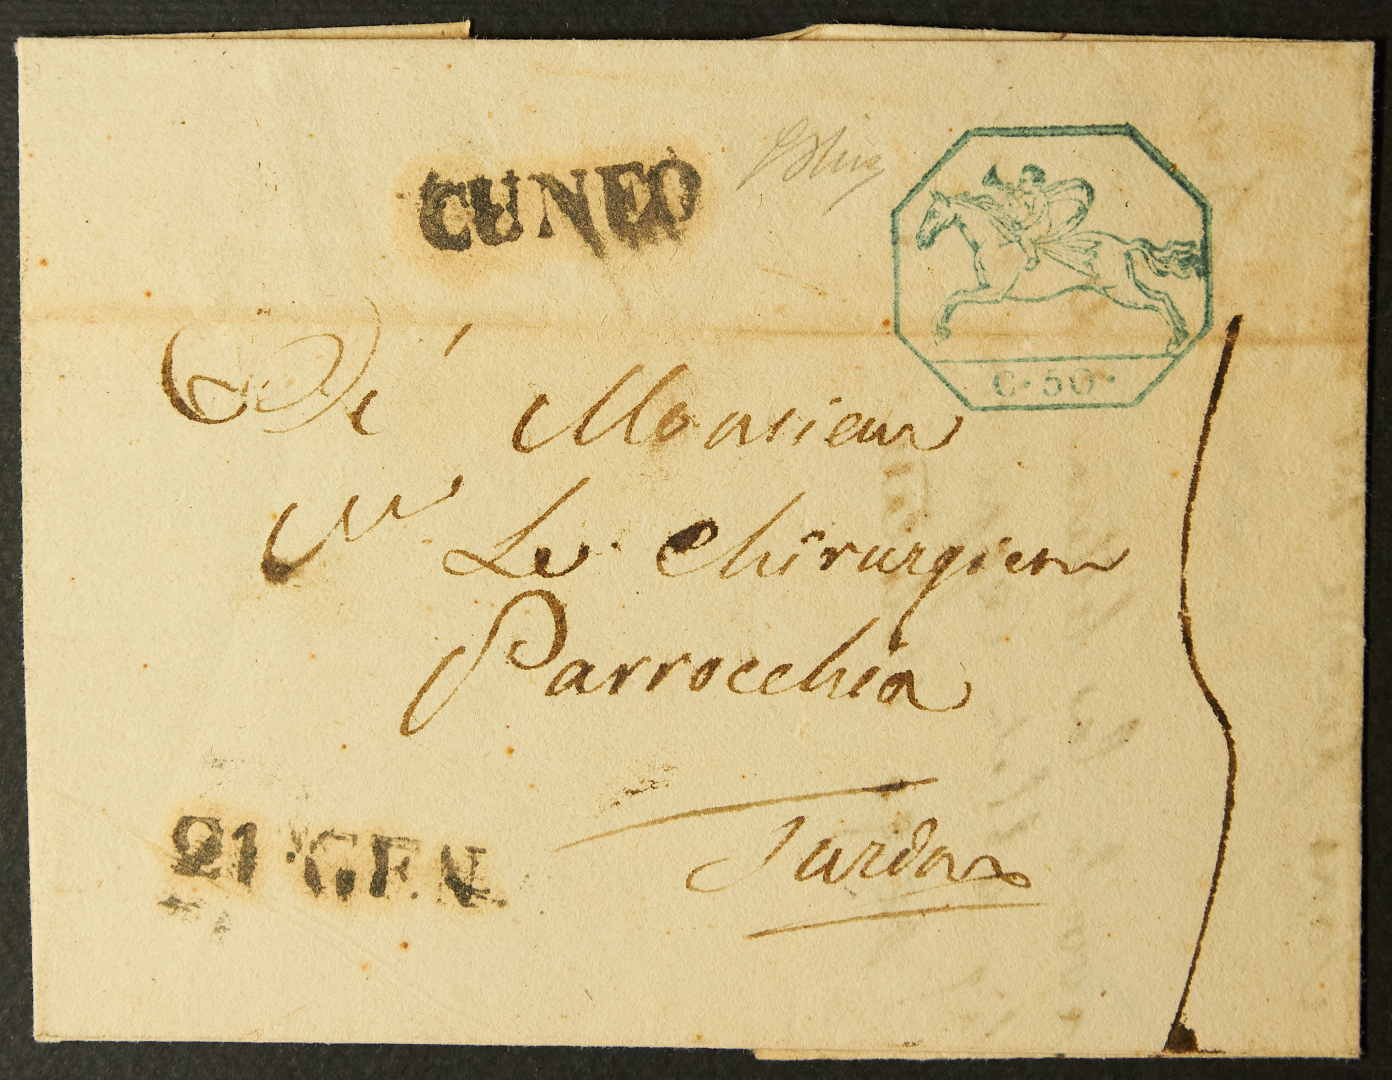 CUNEO
C. 50.
A Monsieur
Le Chirurgien
Parrocchia
21 GEN.